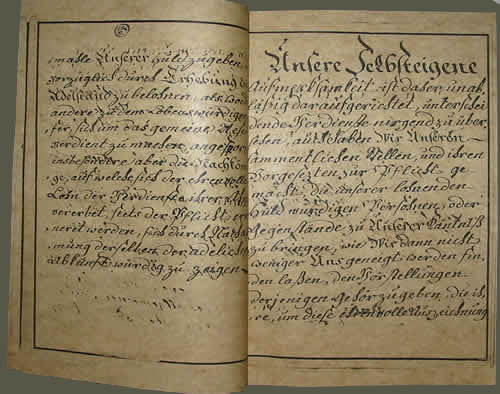 male Unserer Huld zugeben
vorzüglich durch Erhebung
Adelstand zu belohnen, als
andere zu dem
für, sich um das gemeine
verdient zu machen,
insbesondere aber die Nachkom
ge, auf welche, sich der ehrenvolle
Lohn der Verdienste ihrer
vererbet, stets der Pflicht
nerit werden, sich durch
mung derselben der adelichen
Abkunft würdig zu zeigen
Unsere Selbsteigene
Aufmerksamkeit ist daher, unab
läßig darauf gerichtet, unterschei
dende Verdienste nirgend zu über
sehen; auch haben Wir Unseren
sammentlichen Stellen, und ihren
Vorgesetzten zur Pflicht ge
macht, die unserer lohnenden
Huld würdigen Personen, oder
Gegenstände zu Unserer Käntniß
zu bringen, wie Wir dann nicht
weniger Uns geneigt werden fin
den laßen, den Vorstellungen
derjenigen Gehör zu geben, die ih,
re, um diese ehrenvolle Auszeichnung